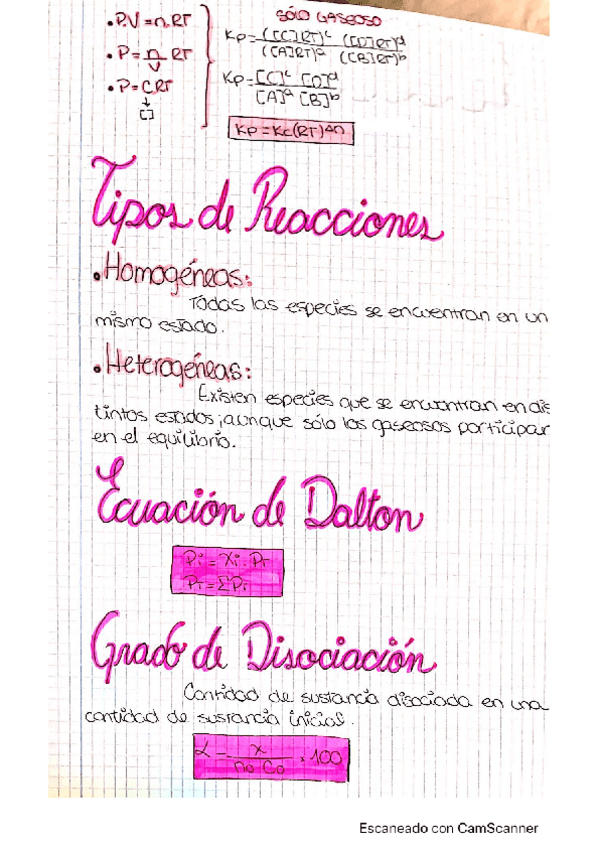 SÓLO GASEOSO
• P.V = n.RT
• P = n/V RT
• P = C.RT
↓
[]
Kp = ([C]RT)ᶜ ([D]RT)ᵈ / ([A]RT)ᵃ ([B]RT)ᵇ
Kp = [C]ᶜ [D]ᵈ / [A]ᵃ [B]ᵇ
Kp = Kc(RT)^Δn
Tipos de Reacciones
• Homogéneas:
Todas las especies se encuentran en un
mismo estado.
• Heterogéneas:
Existen especies que se encuentran en dis
tintos estados; aunque sólo los gaseosos participan
en el equilibrio.
Ecuación de Dalton
Pi = Xi . PT
PT = ΣPi
Grado de Disociación
Cantidad de sustancia disociada en una
cantidad de sustancia inicial.
α = x / no Co . 100
Escaneado con CamScanner